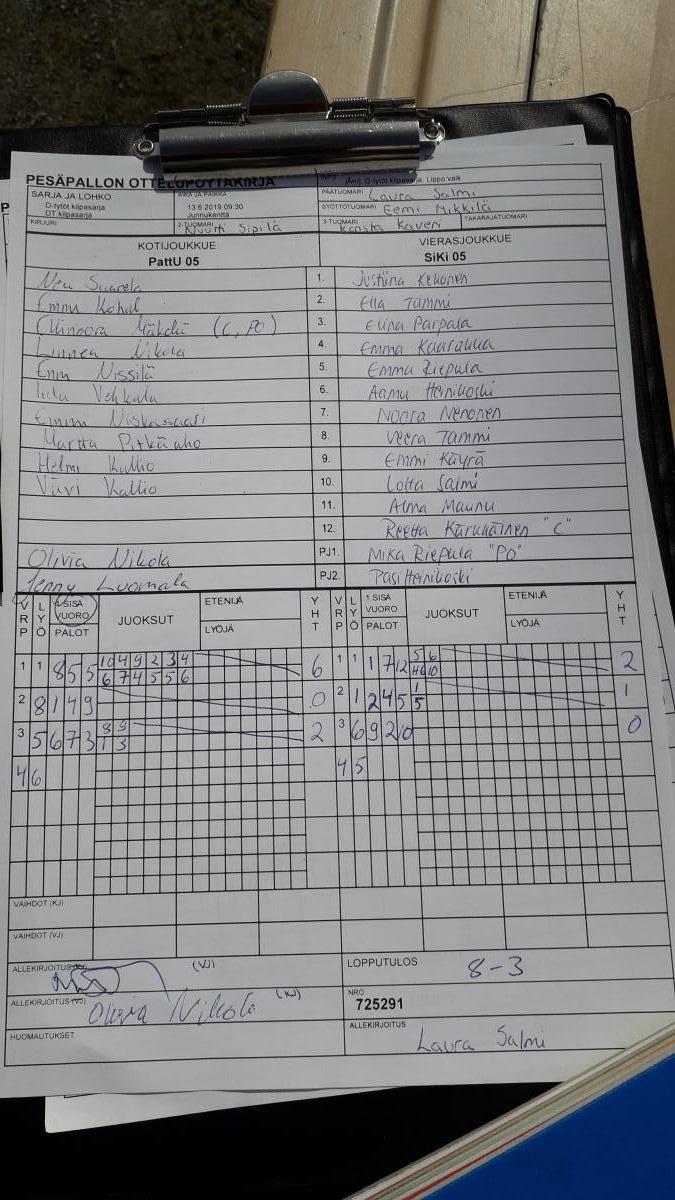 PESÄPALLON OTTELUPÖYTÄKIRJA
SARJA JA LOHKO
D-tytöt kilpasarja
DT kilpasarja
AIKA JA PAIKKA
13.6.2019 09:30
Junnukenttä
INFO
D-tytöt kilpasarja: Lippo valk
PÄÄTUOMARI Laura Salmi
SYÖTTÖTUOMARI Eemi Mikkilä
KIRJURI
2-TUOMARI Nuutti Sipilä
3-TUOMARI Konsta Kaveri
TAKARAJATUOMARI
KOTIJOUKKUE
PattU 05
VIERASJOUKKUE
SiKi 05
1. Justiina Kekonen
Emmi 2. Ella Tammi
Ellinoora (C, PO) 3. Elina Parpala
Linnea Nikola 4. Emma
Enni Nissilä 5. Emma Riepula
Iida Vehkala 6. Aamu Heinikoski
Emmi Niskasaari 7. Noora Nenonen
Martta Pitkäaho 8. Veera Tammi
Helmi Kallio 9. Emmi Käyrä
Viivi Kallio 10. Lotta Salmi
11. Alma Maunu
12. Reetta Karukäinen "C"
Olivia Nikola PJ1. Mika Riepula "PO"
Jenny Luomala PJ2. Pasi Heinikoski
VRP LYÖ 1.SISÄ VUORO PALOT JUOKSUT ETENIJÄ LYÖJÄ YHT
VRP LYÖ 1.SISÄ VUORO PALOT JUOKSUT ETENIJÄ LYÖJÄ YHT
1 1 8 5 5 10 4 9 2 3 4 6 1 1 1 7 12 5 6 2
6 7 4 5 5 6 4 6 10
2 8 1 4 9 0 2 1 2 4 5 1 1
5
3 5 6 7 3 8 9 2 3 6 9 2 10 0
1 3
4 6 4 5
VAIHDOT (KJ)
VAIHDOT (VJ)
ALLEKIRJOITUS (VJ)
LOPPUTULOS 8-3
ALLEKIRJOITUS (VJ) Olivia Nikola (KJ)
NRO
725291
HUOMAUTUKSET
ALLEKIRJOITUS
Laura Salmi